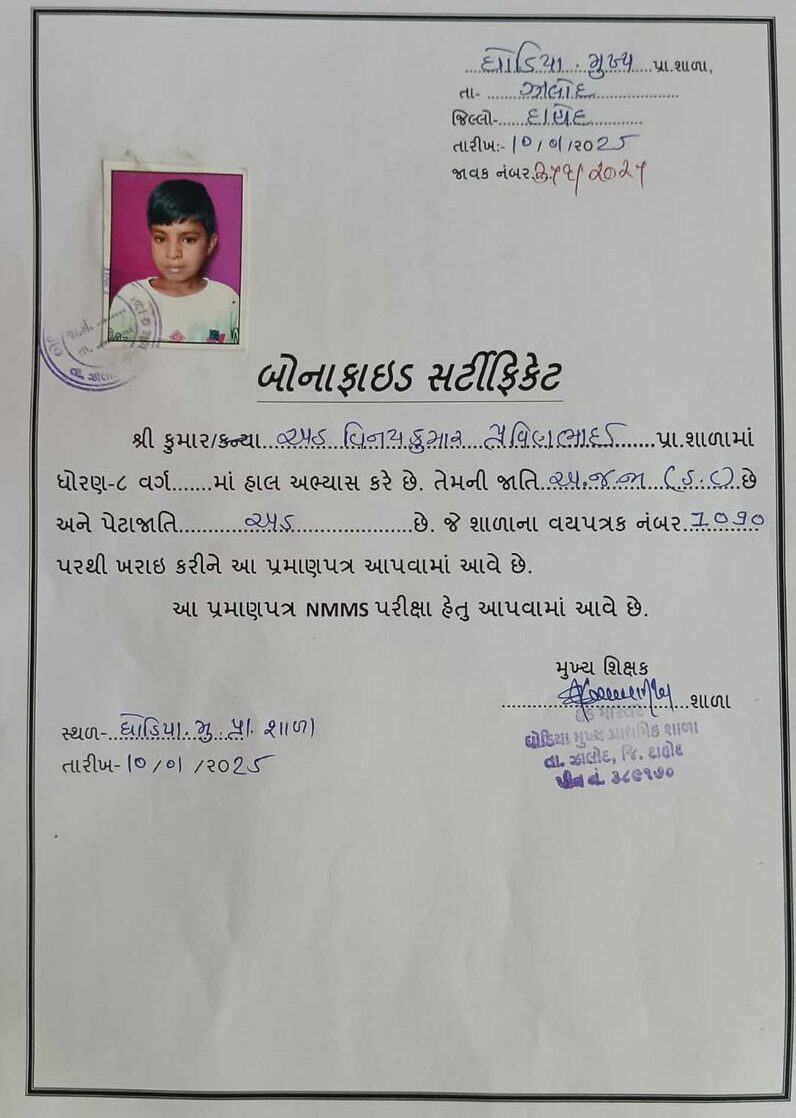 ઘોડિયા. મુખ્ય પ્રા.શાળા,
તા- ઝાલોદ
જિલ્લો- દાહોદ
તારીખ:- ૧૦/૦૧/૨૦25
જાવક નંબર. /2025
બોનાફાઇડ સર્ટીફિકેટ
શ્રી કુમાર/કન્યા વિનયકુમાર પ્રા.શાળામાં
ધોરણ-૮ વર્ગ.......માં હાલ અભ્યાસ કરે છે. તેમની જાતિ અ.જ.જા છે
અને પેટાજાતિ છે. જે શાળાના વયપત્રક નંબર
પરથી ખરાઇ કરીને આ પ્રમાણપત્ર આપવામાં આવે છે.
આ પ્રમાણપત્ર NMMS પરીક્ષા હેતુ આપવામાં આવે છે.
મુખ્ય શિક્ષક
શાળા
હેડ માસ્તર
ઘોડિયા મુખ્ય પ્રાથમિક શાળા
તા. ઝાલોદ, જિ. દાહોદ
પીન નં. ૩૮૯૧૭૦
સ્થળ- ઘોડિયા. મુ. પ્રા. શાળા
તારીખ- ૧૦/૦૧/૨૦25